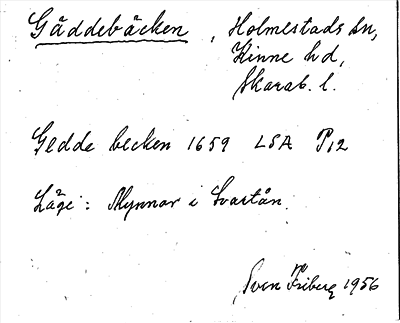 Gäddebäcken, Holmestads sn,
Kinne hd,
Skarab. l.
Gedde becken 1659 LSA P12
Läge: Mynnar i Svartån.
Sven Friberg 1956